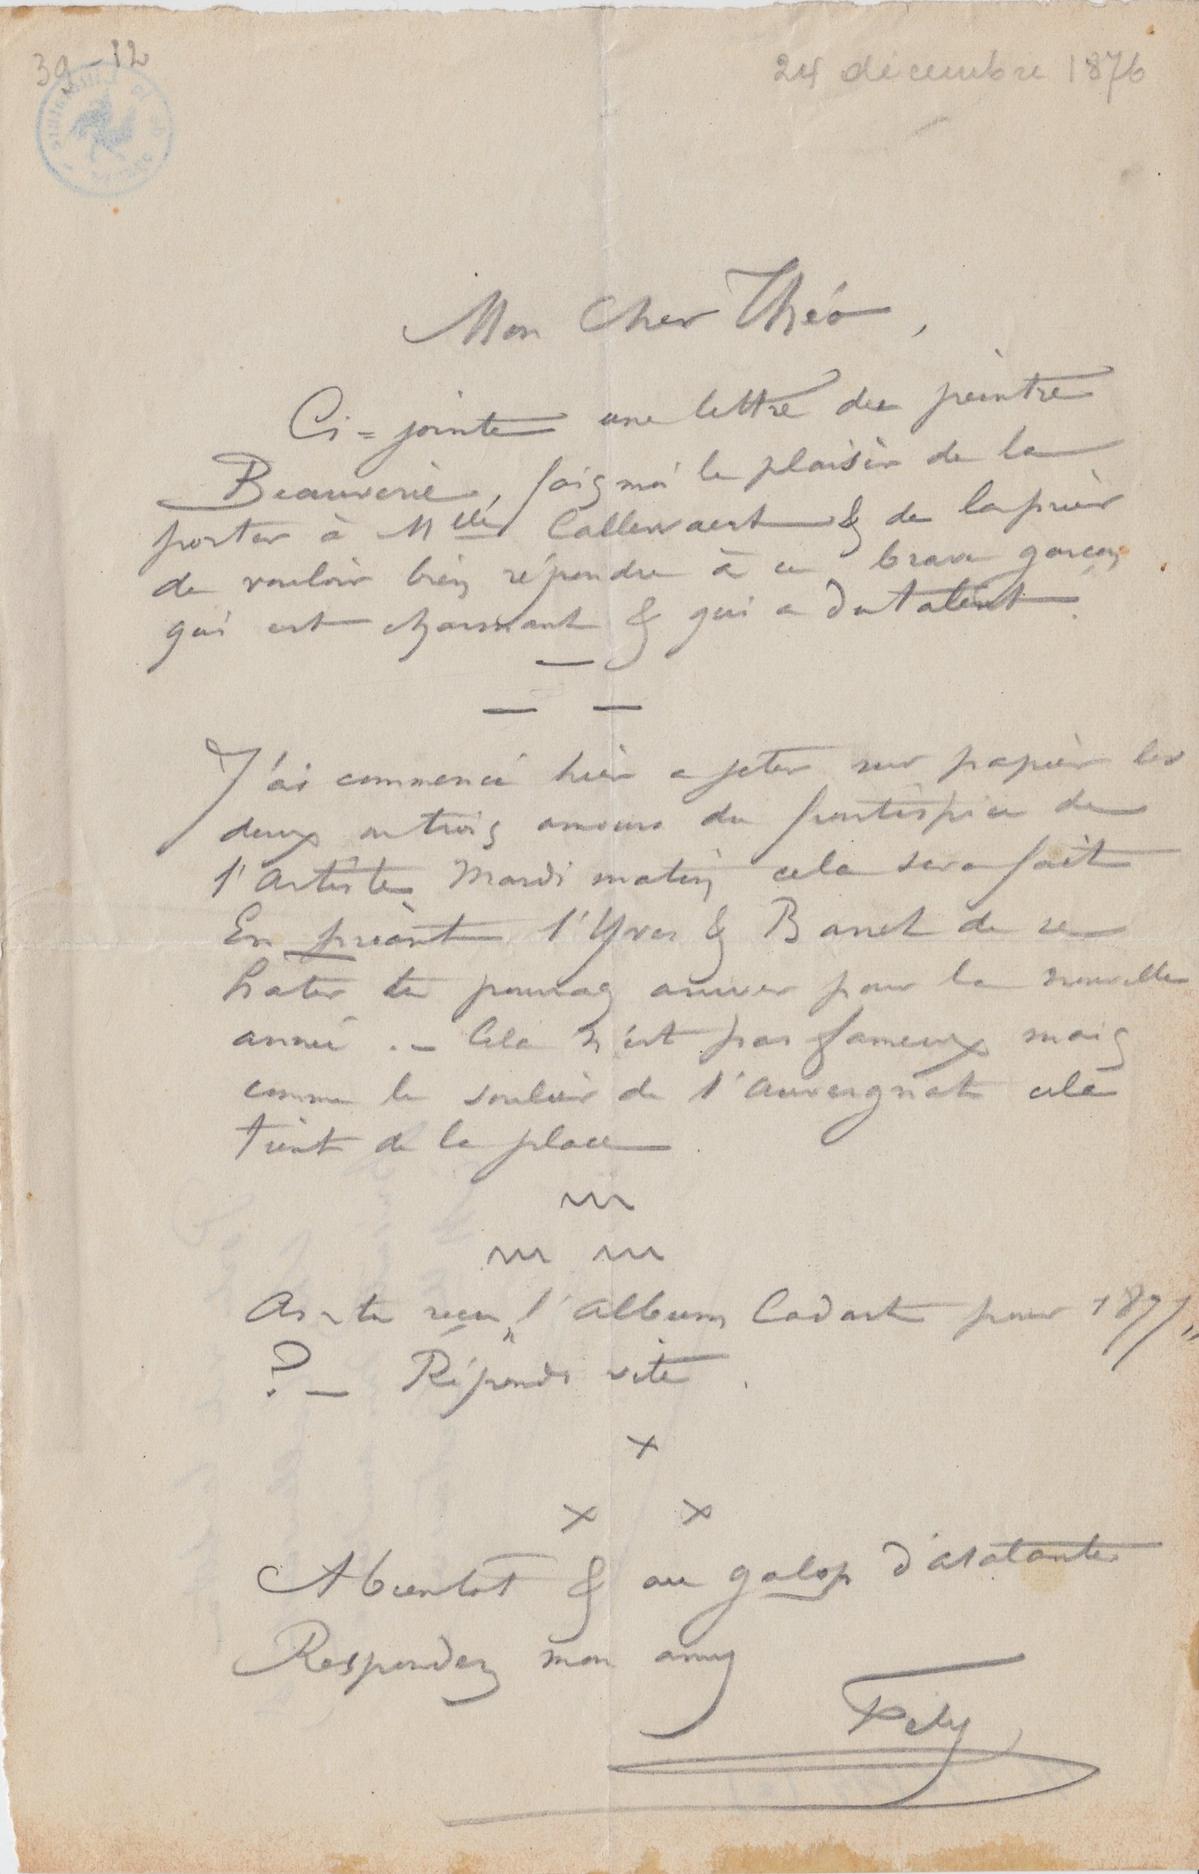 39-12
24 décembre 1876
Mon Cher Théo,
Ci=jointe une lettre du peintre
Beauverie, fais moi le plaisir de la
porter à Mlle Callewaert & de la prier
de vouloir bien répondre à ce brave garçon
qui est charmant & qui a du talent.
J'ai commencé hier a jeter sur papier les
deux ou trois amours du frontispice de
l'Artiste Mardi matin cela sera fait
En priant l'Yves & Banet de se
hater tu pourras arriver pour la nouvelle
année .- Cela n'est pas fameux mais
comme le soulier de l'auvergnat cela
tient de la place.
As-tu reçu l'"album Cadart pour 1877"
?- Réponds vite.
A bientot & au galop d'
Respondez mon amy
Fély